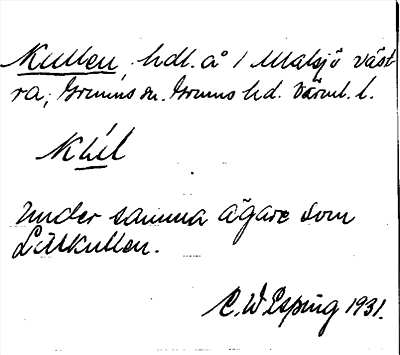 Kullen, hdl. å 1 Malsjö väst
ra, Grums sn. Grums hd. Värml. l.
Under samma ägare som
Lillkullen.
C. W Esping 1931.